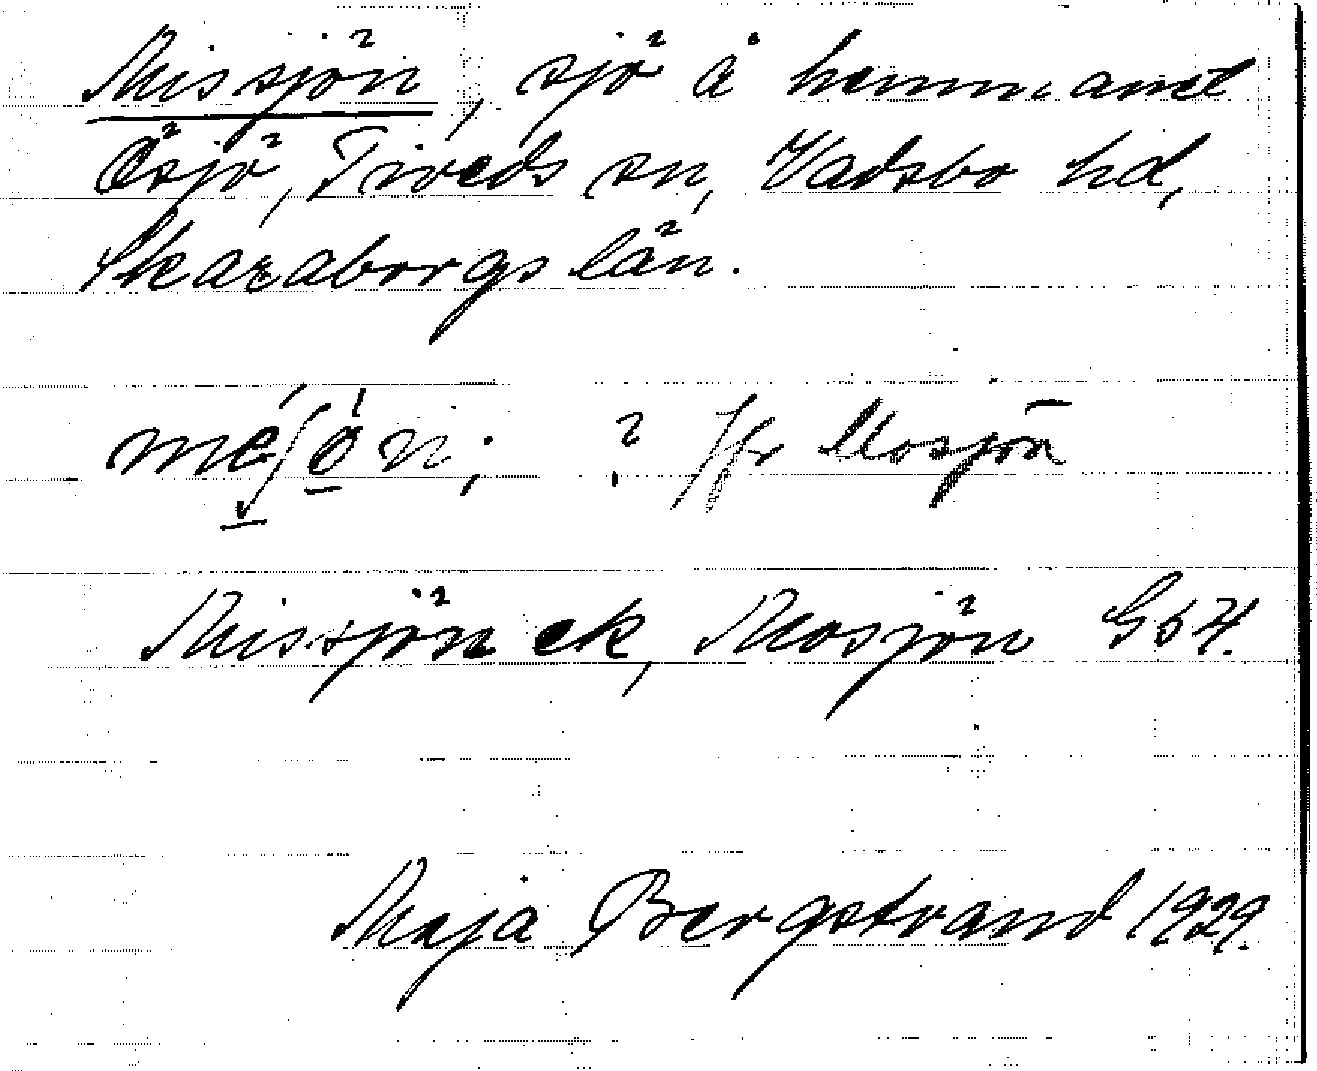 Missjön, sjö å hemmanet
Ösjö, Tiveds sn, Vadsbo hd,
Skaraborgs län.
? Jfr Mosjön
Missjön ek, Mosjön GSH.
Maja Bergstrand 1929.